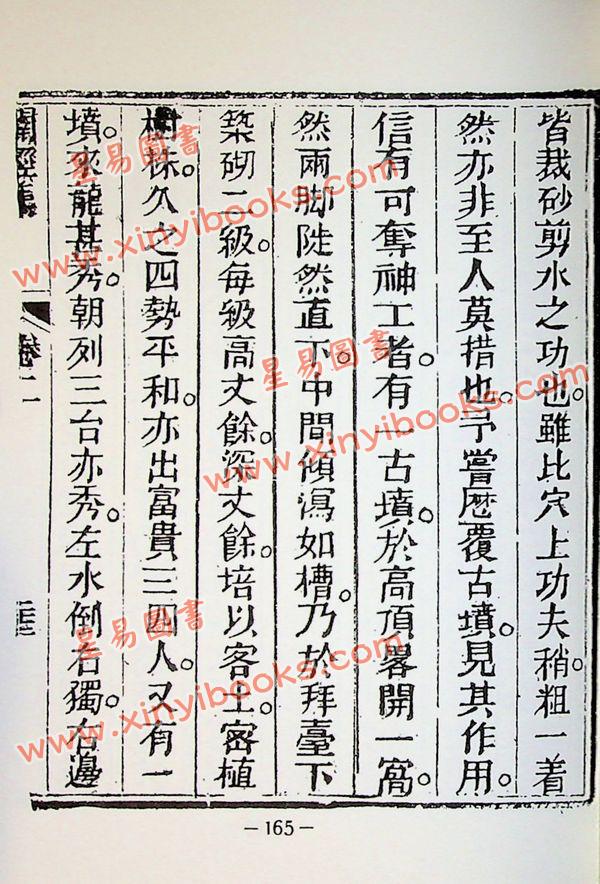 皆裁砂剪水之功也。雖比穴上功夫。稍粗一着
然亦非至人莫措也。予嘗歷覆古墳。見其作用。
信有可奪神工者。有一古墳。於高頂畧開一窩。
然兩脚陡然直下。中間傾瀉如槽。乃於拜臺下
築砌二級。每級高丈餘。深丈餘。培以客土。密植
樹株。久之四勢平和。亦出富貴三四人。又有一
墳。來龍甚秀。朝列三台亦秀。左水倒右。獨右邊
卷二
-165-
星易圖書
www.xinyibooks.com
星易圖書
www.xinyibooks.com
星易圖書
www.xinyibooks.com
星易圖書
www.xinyibooks.com
星易圖書
www.xinyibooks.com